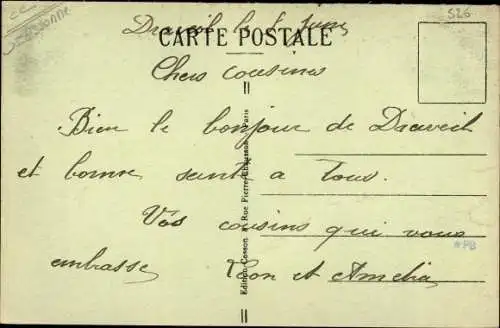 ESSONNE
526
Draveil le 8 Juin
CARTE POSTALE
Chers cousins
Bien le bonjour de Draveil
et bonne santé a tous.
Vos cousins qui vous
embrasse Leon et Amelia
*PB
Edition Cosson, Rue Pierre Paris